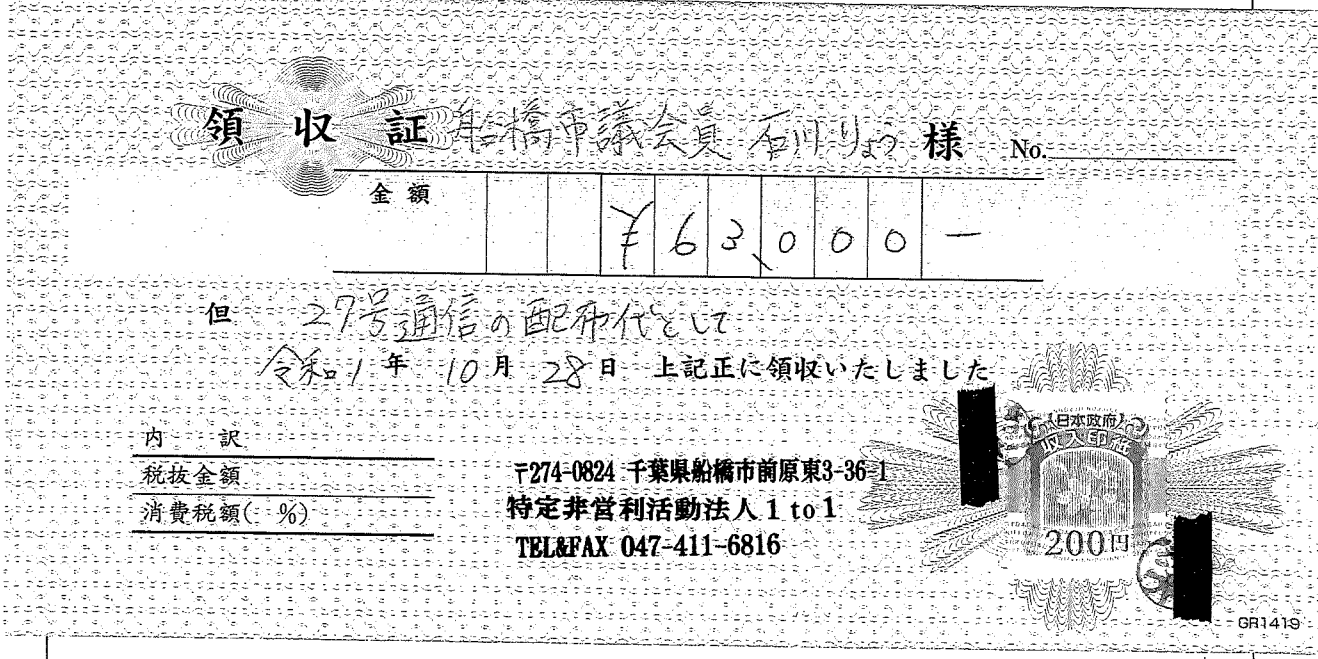 領収証 船橋市議会議員 石川りょう 様 No.
金額 ¥63,000-
但 27号通信の配布代として
令和1年10月28日 上記正に領収いたしました
内訳
税抜金額
消費税額( %)
〒274-0824 千葉県船橋市前原東3-36-1
特定非営利活動法人1 to 1
TEL&FAX 047-411-6816
日本政府
収入印紙
200円
GR1419